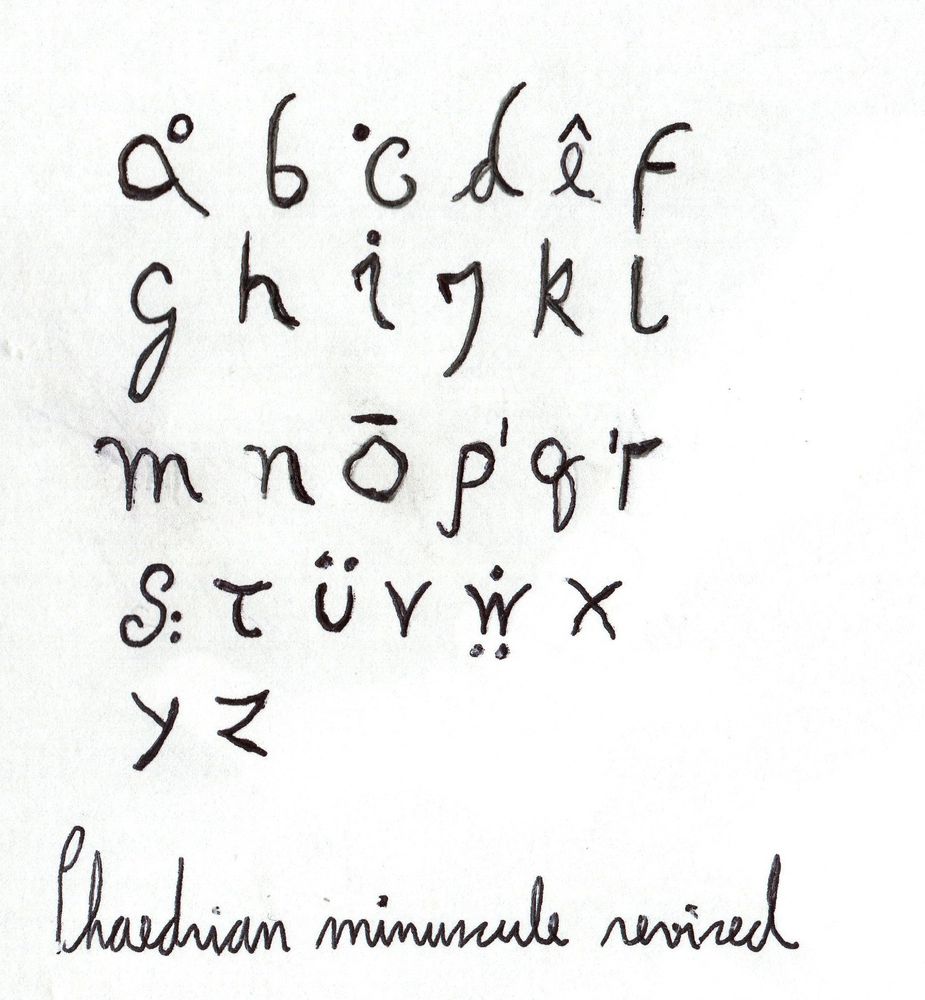 å b ċ d ê f
g h i j k l
m n ō p' q 'r
s: t ü v ẅ̤ x
y z
Phaedrian minuscule revised